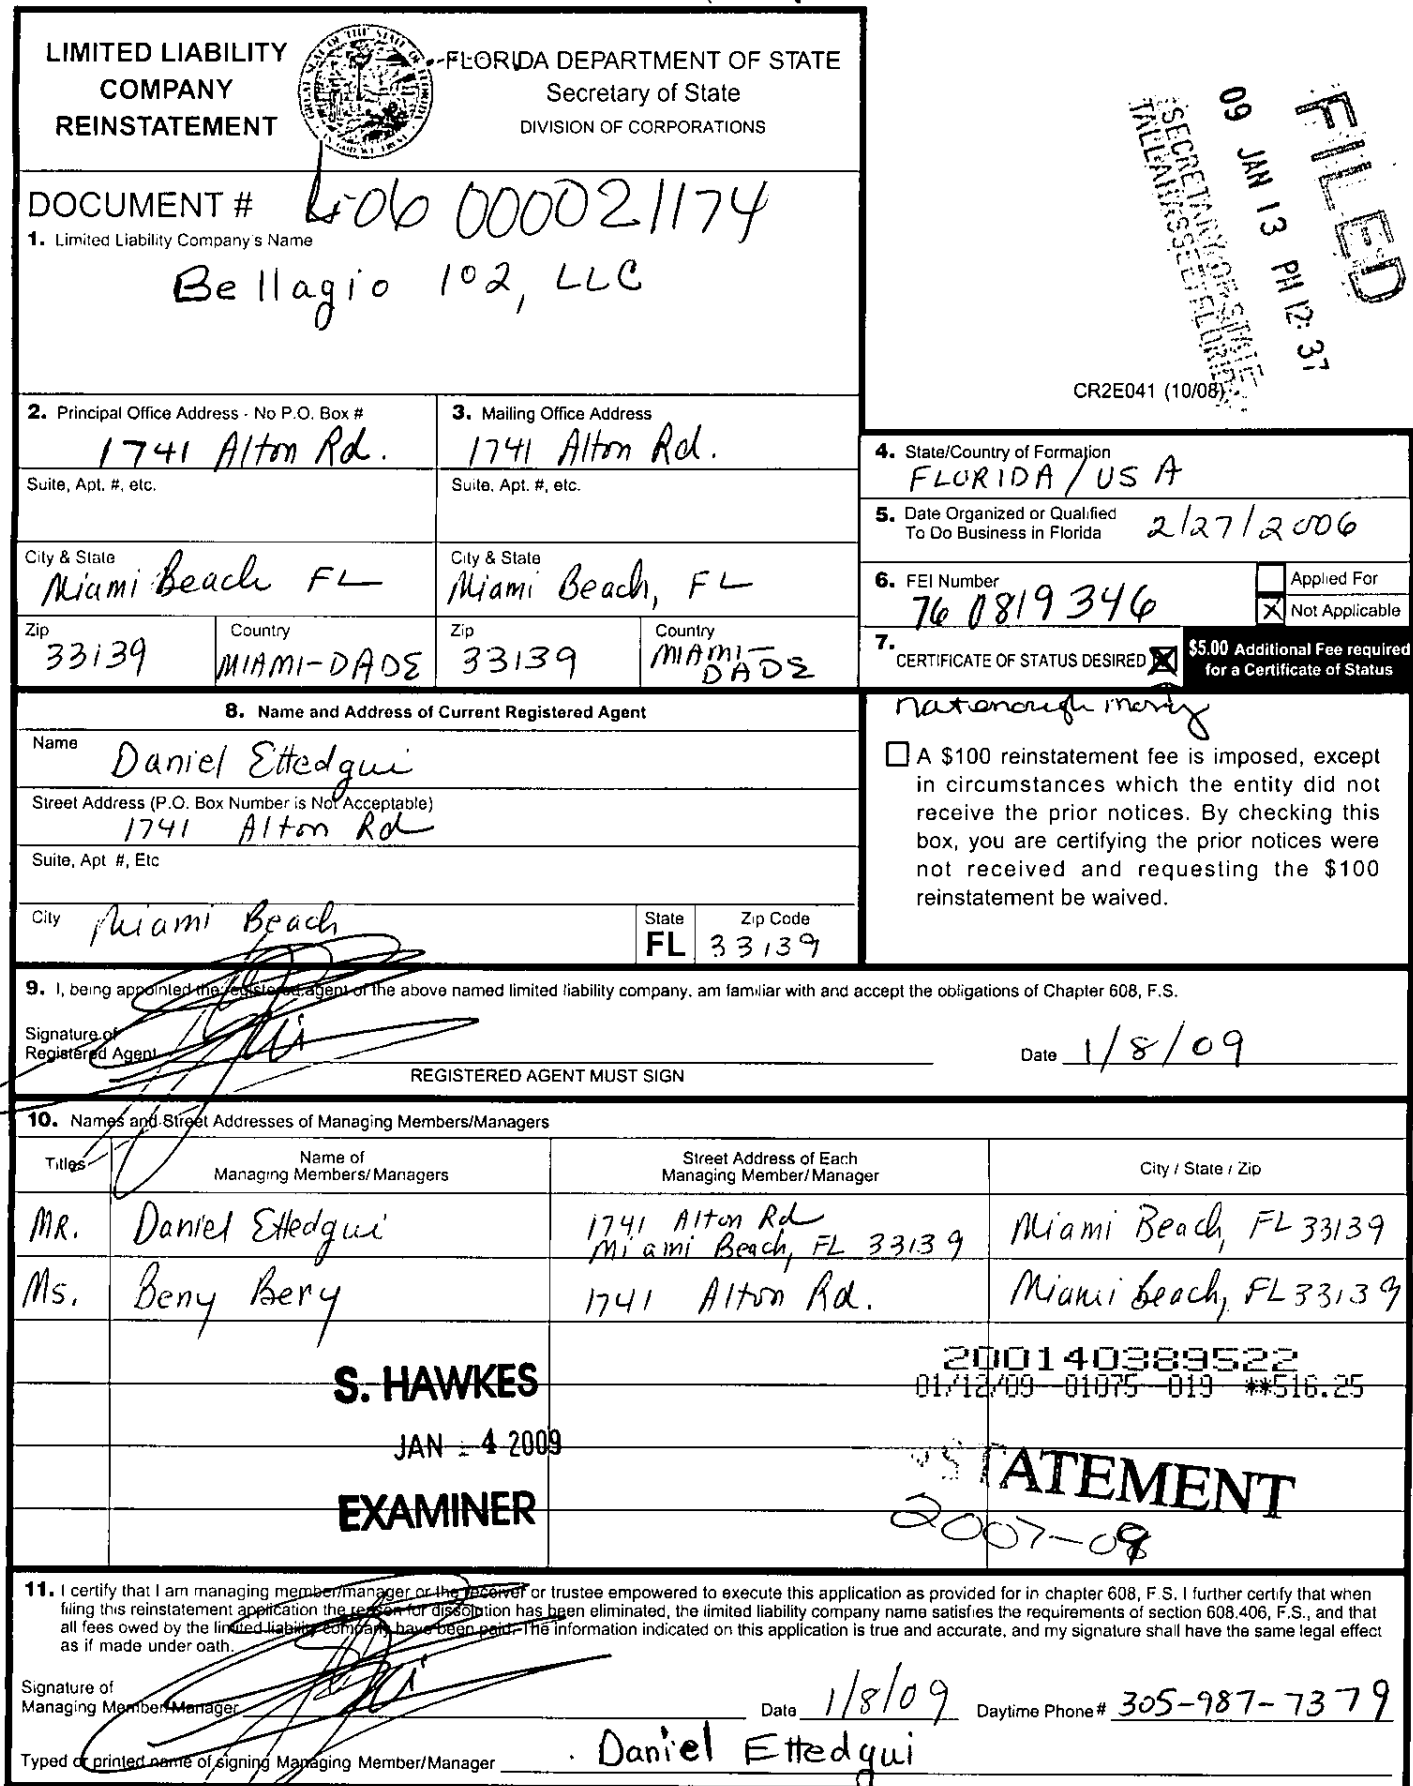 LIMITED LIABILITY
COMPANY
REINSTATEMENT
FLORIDA DEPARTMENT OF STATE
Secretary of State
DIVISION OF CORPORATIONS
FILED
09 JAN 13 PM 12: 37
SECRETARY OF STATE
TALLAHASSEE FLORIDA
DOCUMENT # L06 000021174
1. Limited Liability Company's Name
Bellagio 102, LLC
CR2E041 (10/08)
2. Principal Office Address - No P.O. Box #
1741 Alton Rd.
3. Mailing Office Address
1741 Alton Rd.
Suite, Apt. #, etc.
Suite, Apt. #, etc.
City & State
Miami Beach FL
City & State
Miami Beach, FL
Zip
33139
Country
MIAMI-DADE
Zip
33139
Country
MIAMI-
DADE
4. State/Country of Formation
FLORIDA / USA
5. Date Organized or Qualified
To Do Business in Florida 2/27/2006
6. FEI Number
76 0819346
Applied For
X Not Applicable
7. CERTIFICATE OF STATUS DESIRED X
$5.00 Additional Fee required
for a Certificate of Status
not enough money
8. Name and Address of Current Registered Agent
Name Daniel Ettedgui
Street Address (P.O. Box Number is Not Acceptable)
1741 Alton Rd
Suite, Apt #, Etc
City Miami Beach
State
FL
Zip Code
33139
A $100 reinstatement fee is imposed, except
in circumstances which the entity did not
receive the prior notices. By checking this
box, you are certifying the prior notices were
not received and requesting the $100
reinstatement be waived.
9. I, being appointed the registered agent of the above named limited liability company, am familiar with and accept the obligations of Chapter 608, F.S.
Signature of
Registered Agent
Date 1/8/09
REGISTERED AGENT MUST SIGN
10. Names and Street Addresses of Managing Members/Managers
Titles
Name of
Managing Members/Managers
Street Address of Each
Managing Member/Manager
City / State / Zip
MR. Daniel Ettedgui
1741 Alton Rd
Miami Beach, FL 33139
Miami Beach, FL 33139
Ms. Beny Bery 1741 Alton Rd. Miami Beach, FL 33139
S. HAWKES
JAN 4 2009
EXAMINER
200140389522
01/12/09 01075 019 **516.25
STATEMENT
2007-09
11. I certify that I am managing member/manager or the receiver or trustee empowered to execute this application as provided for in chapter 608, F.S. I further certify that when
filing this reinstatement application the reason for dissolution has been eliminated, the limited liability company name satisfies the requirements of section 608.406, F.S., and that
all fees owed by the limited liability company have been paid. The information indicated on this application is true and accurate, and my signature shall have the same legal effect
as if made under oath.
Signature of
Managing Member/Manager
Date 1/8/09 Daytime Phone# 305-987-7379
Typed or printed name of signing Managing Member/Manager Daniel Ettedgui